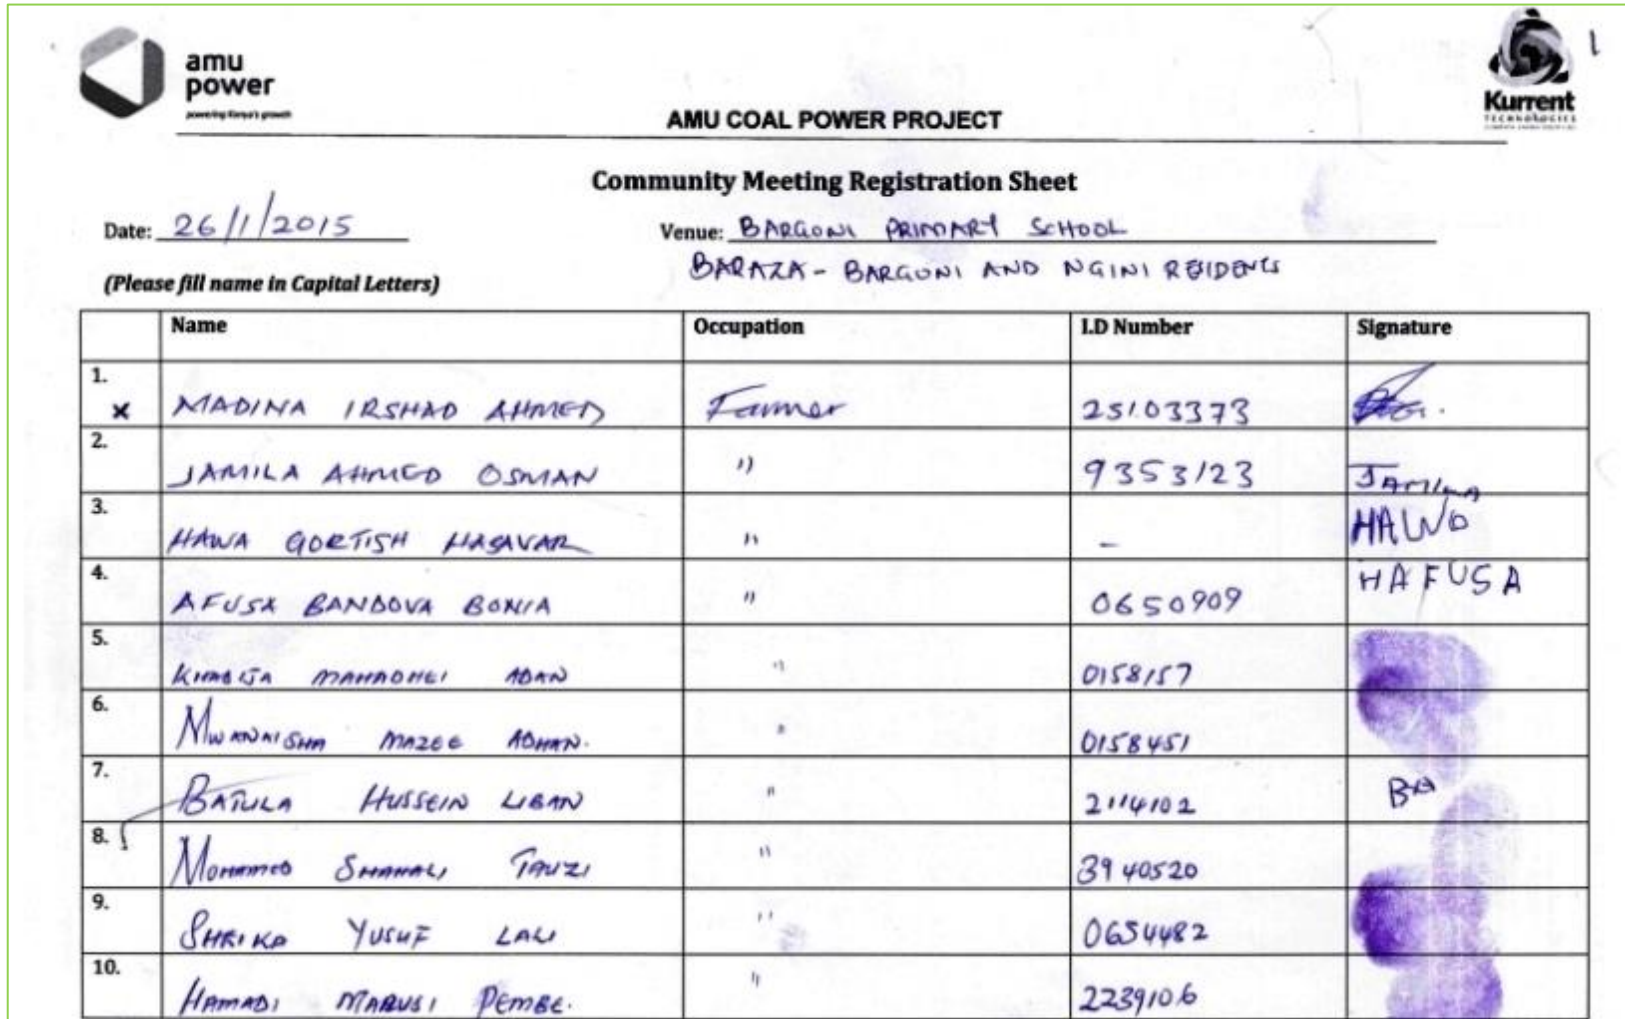 amu
power
powering Kenya's growth
Kurrent
TECHNOLOGIES
1
AMU COAL POWER PROJECT
Community Meeting Registration Sheet
Date: 26/1/2015
Venue: BARGONI PRIMARY SCHOOL
BARAZA - BARGONI AND NGINI RESIDENTS
(Please fill name in Capital Letters)
Name Occupation I.D Number Signature
1. x MADINA IRSHAD AHMED Farmer 25103373
2. JAMILA AHMED OSMAN " 9353123 JAMILA
3. HAWA GORTISH HASAVAR " - HAWO
4. AFUSA BANDOVA BONIA " 0650909 HAFUSA
5. KHADIJA MAHADHEI ADAN " 0158157
6. MWANAISHA MAZEE ADHAN. " 0158451
7. BATULA HUSSEIN LIBAN " 2114102
8. MOHAMED SHAHALI TAUZI " 3940520
9. SHRIKA YUSUF LALI " 0654482
10. HAMADI MARUSI PEMBE. " 2239106